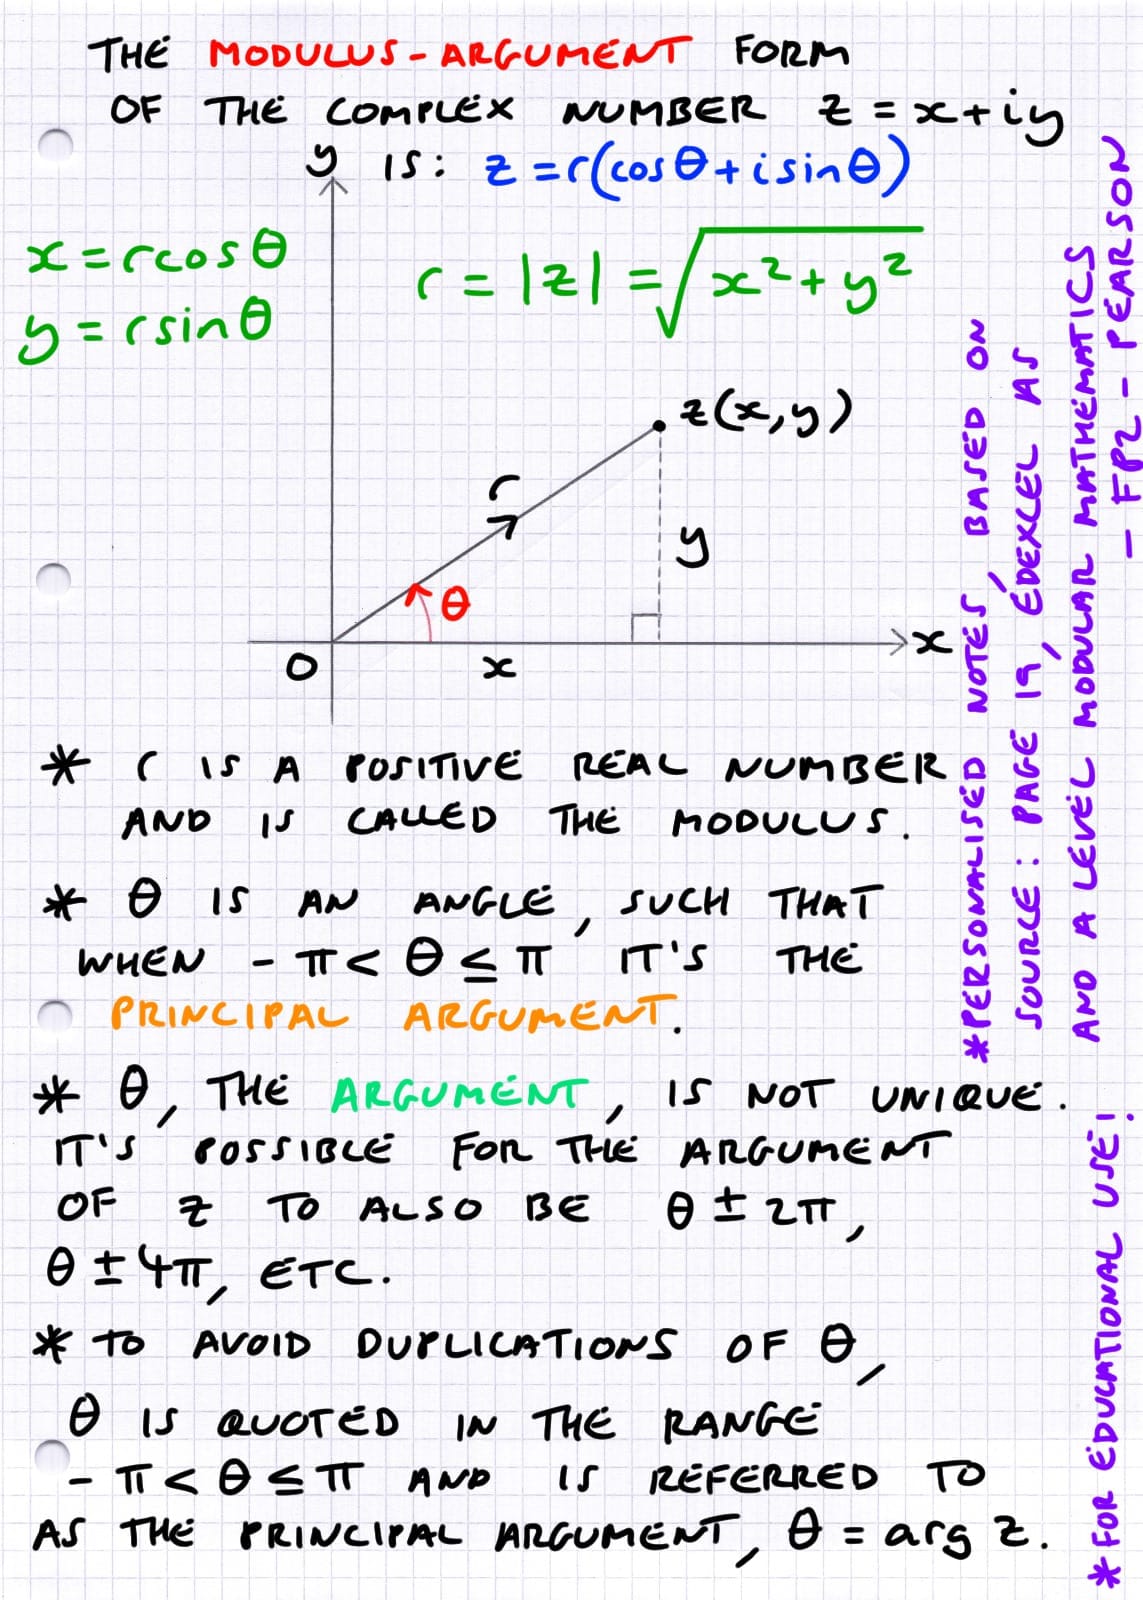 THE MODULUS-ARGUMENT FORM
OF THE COMPLEX NUMBER z = x+iy
IS: z = r(cosθ + isinθ)
y
x = rcosθ
y = rsinθ
r = |z| = √x²+y²
z(x,y)
r
y
θ
O
x
x
* r IS A POSITIVE REAL NUMBER
AND IS CALLED THE MODULUS.
* θ IS AN ANGLE, SUCH THAT
WHEN -π < θ ≤ π IT'S THE
PRINCIPAL ARGUMENT.
* θ, THE ARGUMENT, IS NOT UNIQUE.
IT'S POSSIBLE FOR THE ARGUMENT
OF z TO ALSO BE θ ± 2π,
θ ± 4π, ETC.
* TO AVOID DUPLICATIONS OF θ,
θ IS QUOTED IN THE RANGE
-π < θ ≤ π AND IS REFERRED TO
AS THE PRINCIPAL ARGUMENT, θ = arg z.
*PERSONALISED NOTES, BASED ON
SOURCE: PAGE 19, EDEXCEL AS
AND A LEVEL MODULAR MATHEMATICS
- FP2 - PEARSON
*FOR EDUCATIONAL USE!